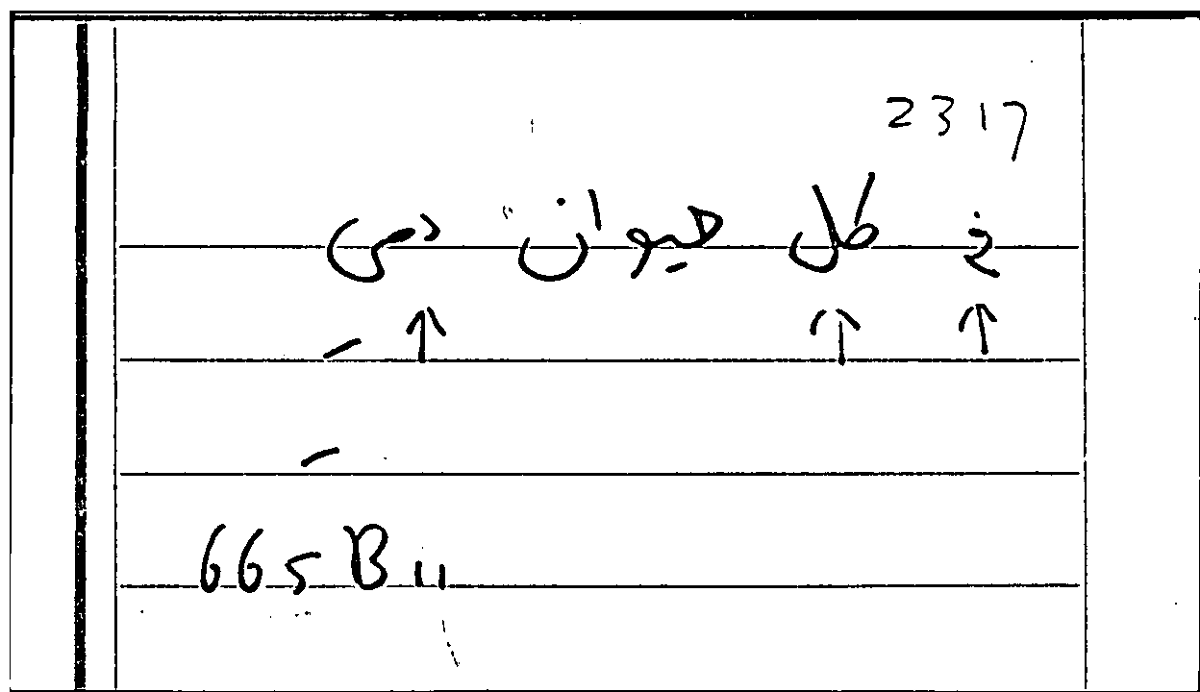 2317
في كل حيوان دمى
↑ ↑ ↑
665 B 11